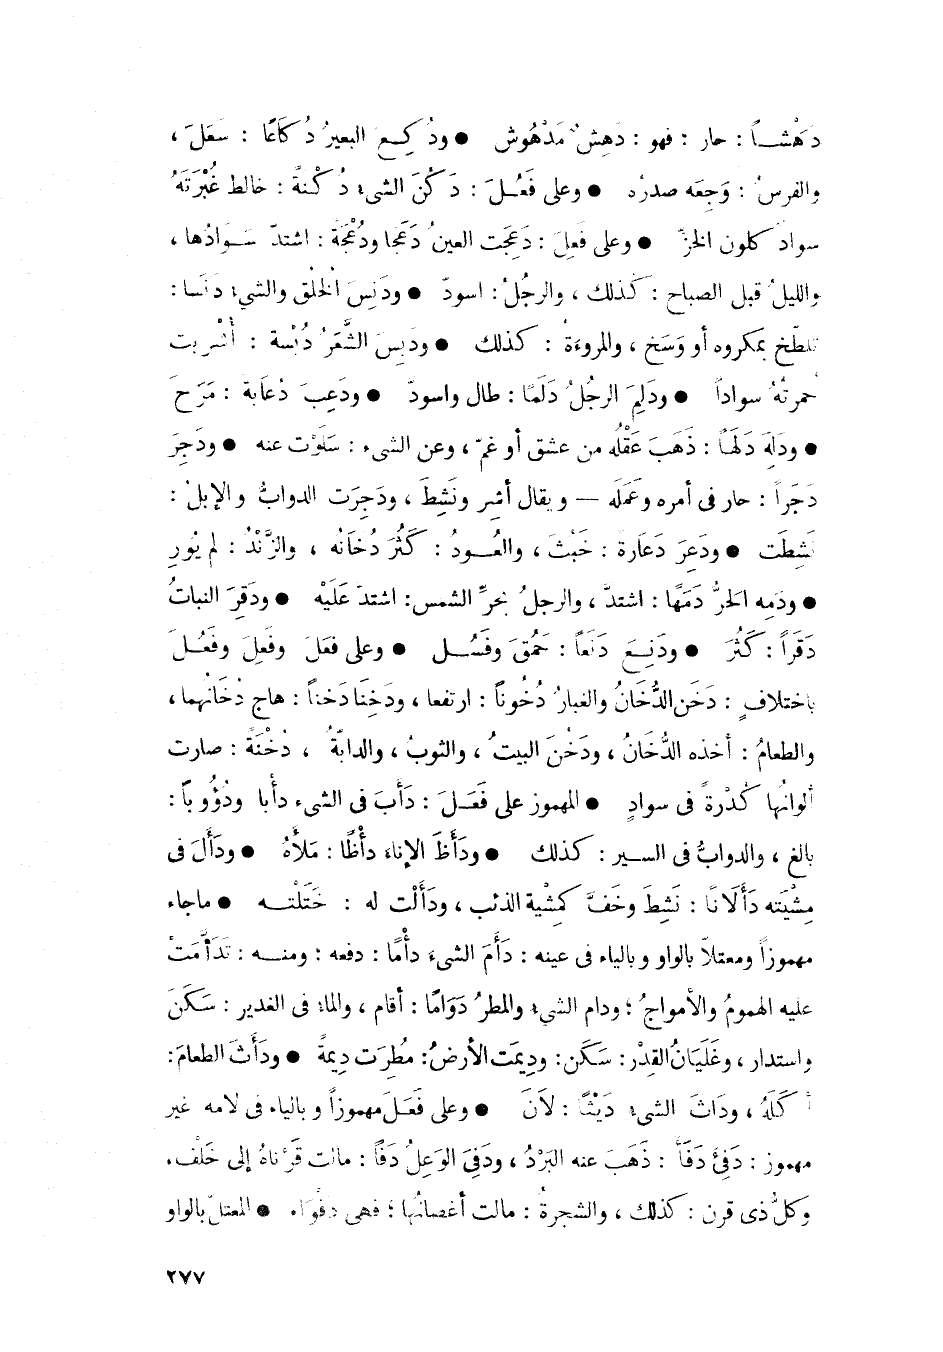 دَهْشــاً : حار : فهو : دَهِشٌ مَدْهُوش ● ودُكِــعَ البعيرُ دُكَاعًا : سَعَلَ ،
والفرسُ : وَجِعَه صدرُه ● وعلى فَعُــلَ : دَكُنَ الشىءُ دُكْنةً : خالط غُبْرَتَهُ
سوادٌ كلون الخزِّ ● وعلى فَعِلَ : دَعِجَت العينُ دَعَجا ودُعْجَةً : اشتدّ سَــوادُها ،
والليلُ قبل الصباح : كذلك ، والرجُلُ : اسودّ ● ودَنِسَ الخُلُق والشىءُ دَنَسا :
تلطّخ بمكروه أو وَسَخ ، والمروءَةُ : كذلك ● ودَبِسَ الشَّعَرُ دُبْسة : أُشْرِبت
حمرتُهُ سواداً ● ودَلِمَ الرجُلُ دَلَمًا : طال واسودّ ● ودَعِبَ دُعَابة : مَزَحَ
● ودَلِهَ دَلَهًا : ذَهَبَ عَقْلُه من عشق أو غمّ ، وعن الشىء : سَلَوْت عنه ● ودَجِرَ
دَجَراً : حار فى أمره وعَمَلَه — ويقال أَشِر ونَشِطَ ، ودَجِرَت الدوابُّ والإبلُ :
نَشِطَت ● ودَعِرَ دَعَارة : خَبُثَ ، والعُــودُ : كَثُرَ دُخَانُه ، والزَّنْدُ : لم يُورِ
● ودَمِه الحَرُّ دَمَهًا : اشتدّ ، والرجلُ بحرِّ الشمس : اشتدّ عَلَيْه ● ودَقِرَ النباتُ
دَقَراً : كَثُرَ ● ودَنِــعَ دَنَعاً : حَمُقَ وفَسُــل ● وعلى فَعَلَ وفَعِلَ وفَعُــلَ
باختلافٍ : دَخَن الدُّخَانُ والغبارُ دُخُوناً : ارتفعا ، ودَخِنَا دَخناً : هاج دُخَانُهما ،
والطعامُ : أخذه الدُّخَانُ ، ودَخُنَ البيتُ ، والثوبُ ، والدابّةُ ، دُخْنَةً : صارت
ألوانُها كُدْرةً فى سوادٍ ● المهموز على فَعَــلَ : دَأَبَ فى الشىء دأْبا ودُؤُوباً :
بالغ ، والدوابُّ فى السير : كذلك ● ودَأَظَ الإناءَ دأْظًا : مَلأَهُ ● ودَأَلَ فى
مِشْيَته دَأَلَانًا : نَشِطَ وخَفَّ كمِشْية الذئب ، ودَأَلْت له : خَتَلْتــه ● ماجاء
مهموزاً ومعتلاّ بالواو وبالياء فى عينه : دَأَمَ الشىءَ دأْمًا : دفعه : ومنــه : تَدَأَّمَتْ
عليه الهمومُ والأمواجُ ؛ ودام الشىءُ والمطرُ دَوَامًا : أقام ، والماءُ فى الغدير : سَكَنَ
واستدار ، وغَلَيَانُ القِدْر : سَكَن : ودِيمَت الأرضُ : مُطِرَت دِيمةً ● ودَأَثَ الطعامَ :
أَكَلَهُ ، ودَاثَ الشىءُ دَيْثًا : لَانَ ● وعلى فَعَــلَ مهموزاً وبالياء فى لامه غير
مهموز : دَفِئَ دَفَأً : ذَهَبَ عنه البَرْدُ ، ودَفِىَ الوَعِلُ دَفًا : مالت قَرْناهُ إلى خَلْف .
وكلُّ ذى قرن : كذلك ، والشجرةُ : مالت أغصانُها ؛ فهى دَفْوَاء ● المعتلّ بالواو
٢٧٧